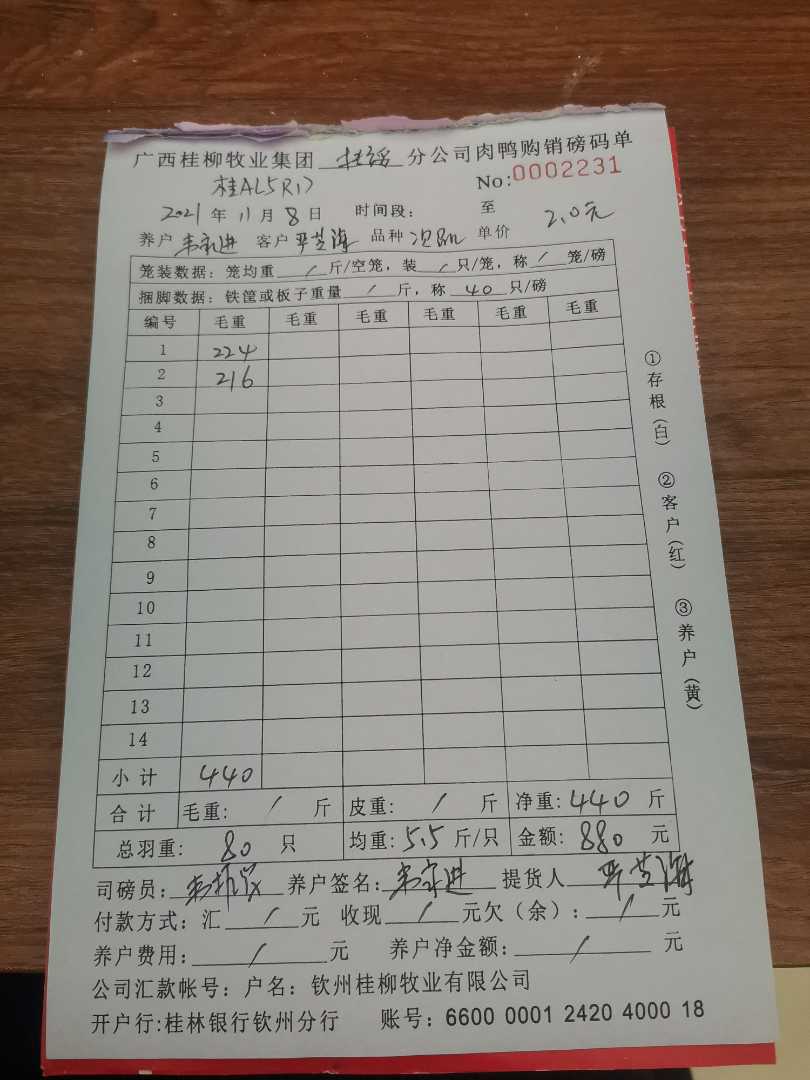 广西桂柳牧业集团 分公司肉鸭购销磅码单
桂AL5R17
No:0002231
2021年11月8日 时间段: 至
养户 韦家进 客户 严芝海 品种 次 单价 2.0元
笼装数据: 笼均重 / 斤/空笼, 装 / 只/笼, 称 / 笼/磅
捆脚数据: 铁筐或板子重量 / 斤, 称 40 只/磅
编号 毛重 毛重 毛重 毛重 毛重 毛重
1 224
2 216
3
4
5
6
7
8
9
10
11
12
13
14
小计 440
合计 毛重: / 斤 皮重: / 斤 净重: 440 斤
总羽重: 80 只 均重: 5.5 斤/只 金额: 880 元
司磅员: 韦 养户签名: 韦家进 提货人 严芝海
付款方式: 汇 / 元 收现 / 元欠(余): / 元
养户费用: / 元 养户净金额: / 元
公司汇款帐号: 户名: 钦州桂柳牧业有限公司
开户行:桂林银行钦州分行 账号: 6600 0001 2420 4000 18
①存根(白) ②客户(红) ③养户(黄)